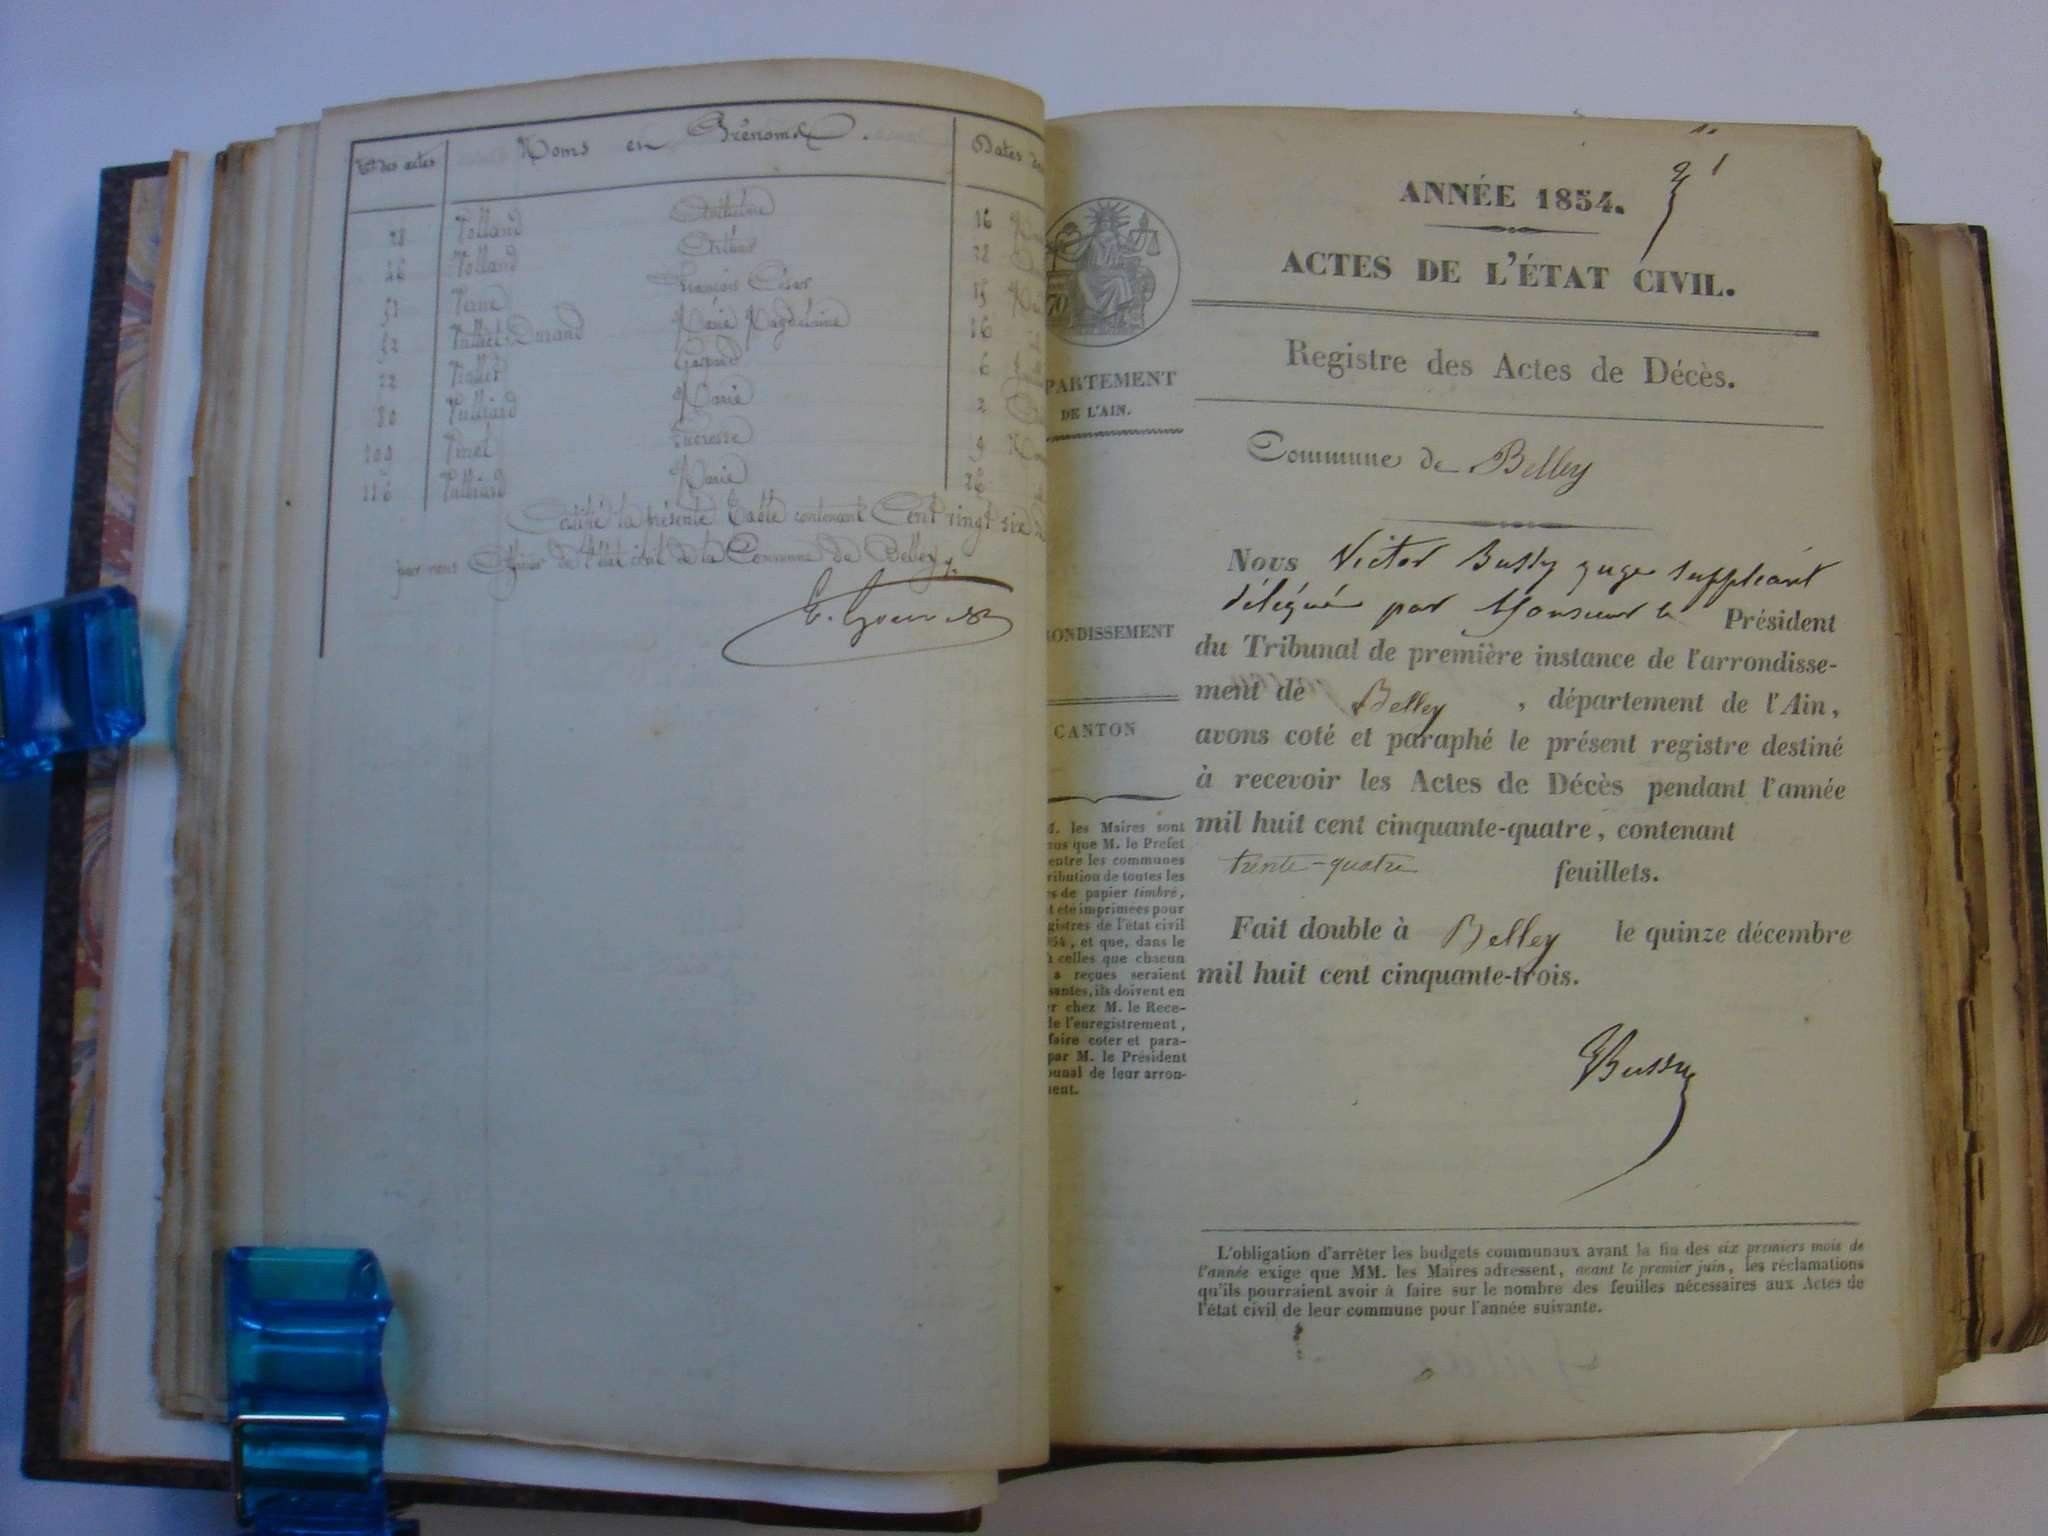 Nos des actes
Noms et Prénoms.
Dates
28 Volland Anthelme 16
26 Volland Arthur 22
51 Verne François César 15
52 Vulliet-Durand Marie Magdelaine 16
22 6
80 Vulliard Marie 2
100 Vinet Lucresse 9
116 Vulliard Marie 26
Certifié la présente Table contenant Cent vingt six
par nous Officier de l'état civil de la Commune de Belley
1
ANNÉE 1854.
ACTES DE L'ÉTAT CIVIL.
Registre des Actes de Décès.
Commune de Belley
Nous Victor Bussy juge suppléant
délégué par Monsieur le Président
du Tribunal de première instance de l'arrondisse-
ment de Belley , département de l'Ain,
avons coté et paraphé le présent registre destiné
à recevoir les Actes de Décès pendant l'année
mil huit cent cinquante-quatre, contenant
trente-quatre feuillets.
Fait double à Belley le quinze décembre
mil huit cent cinquante-trois.
VBussy
L'obligation d'arrêter les budgets communaux avant la fin des six premiers mois de
l'année exige que MM. les Maires adressent, avant le premier juin, les réclamations
qu'ils pourraient avoir à faire sur le nombre des feuilles nécessaires aux Actes de
l'état civil de leur commune pour l'année suivante.
70
PARTEMENT
DE L'AIN.
ONDISSEMENT
CANTON
M. les Maires sont
nus que M. le Préfet
entre les communes
ribution de toutes les
es de papier timbré,
t été imprimées pour
gistres de l'état civil
854, et que, dans le
ù celles que chacun
a reçues seraient
santes, ils doivent en
r chez M. le Rece-
de l'enregistrement,
faire coter et para-
par M. le Président
ounal de leur arron-
ment.